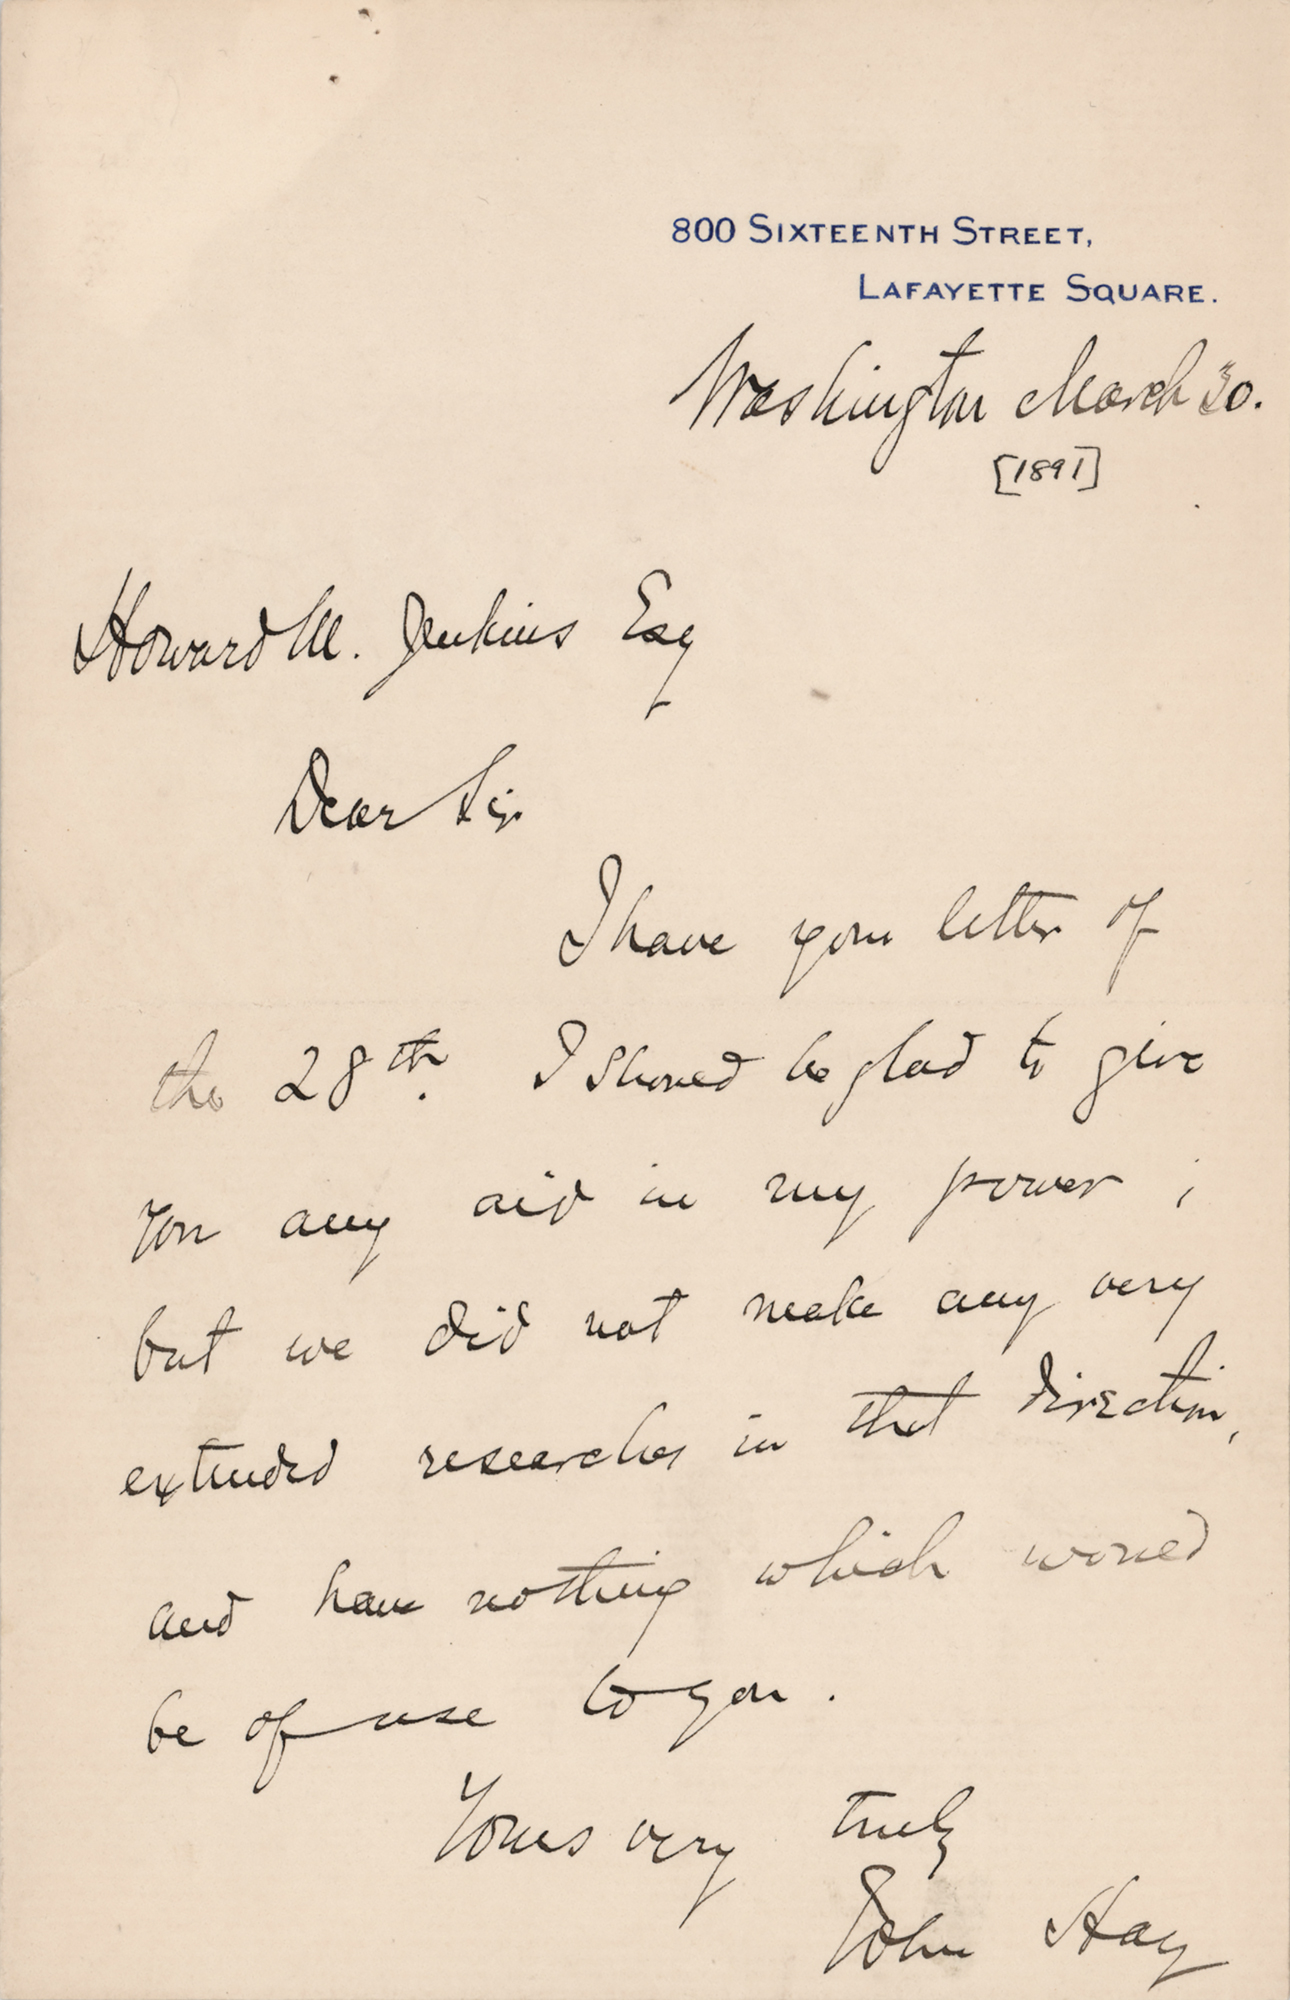 800 SIXTEENTH STREET,
LAFAYETTE SQUARE.
Washington March 30.
[1891]
Howard M. Jenkins Esq
Dear Sir
I have your letter of
the 28th. I should be glad to give
you any aid in my power;
but we did not make any very
extended researches in that direction,
and have nothing which would
be of use to you.
Yours very truly
John Hay